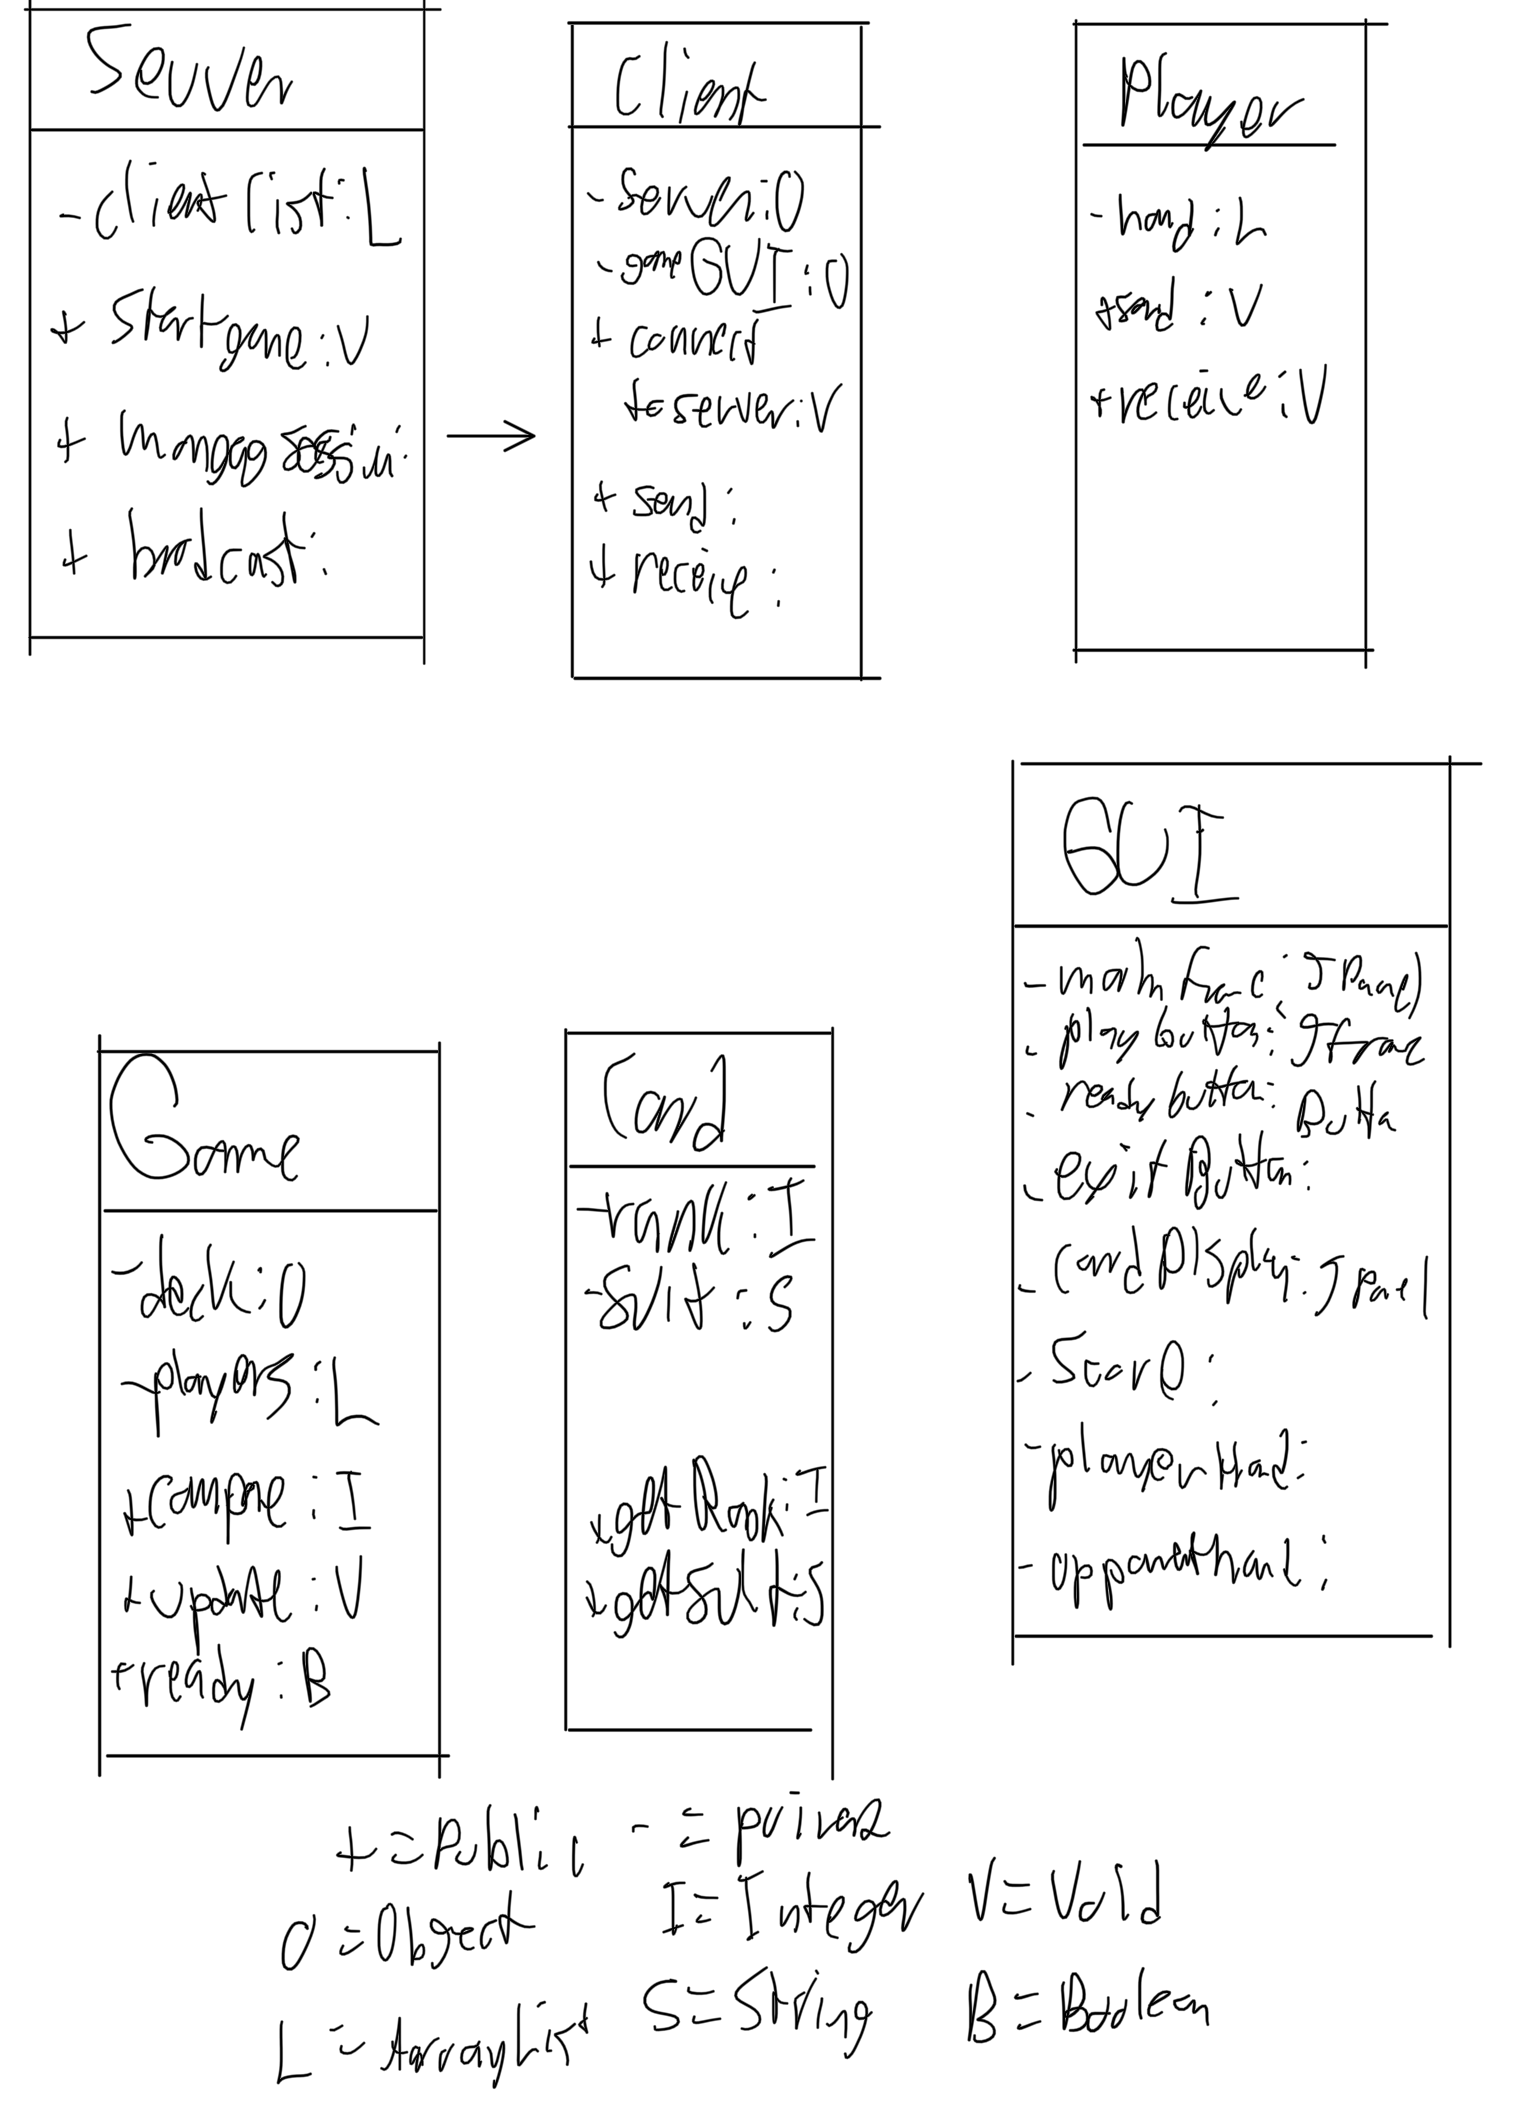 Server
- client list : L
+ startgame : V
+ manage session :
+ brodcast :
Client
- server : O
- gameGUI : O
+ connect
to server : V
+ send :
+ receive :
Player
- hand : L
+ send : V
+ receive : V
GUI
- main frame : JPanel
- play button : Jframe
- ready button : Button
- exit Button :
- card Display : JPanel
- Score :
- player Hand :
- opponent hand :
Game
- deck : O
- players : L
+ compare : I
+ update : V
+ ready : B
Card
- rank : I
- suit : S
+ getRank : I
+ getSuit : S
+ = Public - =
O = Object I = Integer V = Void
L = ArrayList S = String B = Boolean